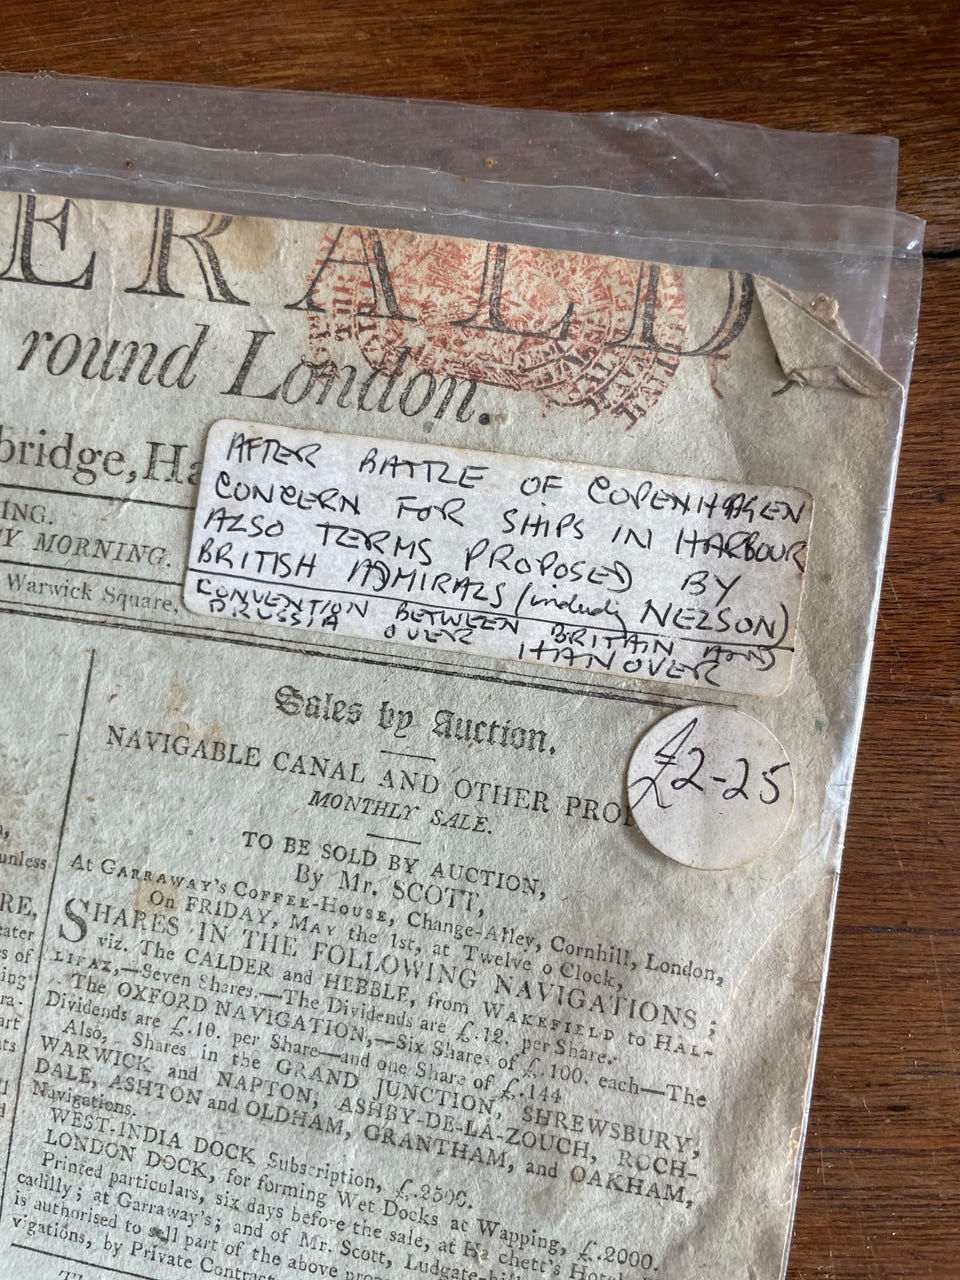 ERALD
round London.
bridge, Ha
ING.
Y MORNING.
Warwick Square,
AFTER BATTLE OF COPENHAGEN
CONCERN FOR SHIPS IN HARBOUR
ALSO TERMS PROPOSED BY
BRITISH ADMIRALS (including NELSON)
CONVENTION BETWEEN BRITAIN AND
PRUSSIA OVER HANOVER
£2-25
Sales by Auction.
NAVIGABLE CANAL AND OTHER PRO
MONTHLY SALE.
TO BE SOLD BY AUCTION,
By Mr. SCOTT,
At GARRAWAY'S COFFEE-HOUSE, Change-Alley, Cornhill, London,
On FRIDAY, MAY the 1st, at Twelve o'Clock,
SHARES IN THE FOLLOWING NAVIGATIONS;
viz. The CALDER and HEBBLE, from WAKEFIELD to HAL-
LIFAX,—Seven Shares.—The Dividends are £.12. per Share.
The OXFORD NAVIGATION,—Six Shares of £.100. each—The
Dividends are £.10. per Share—and one Share of £.144
Also, Shares in the GRAND JUNCTION, SHREWSBURY,
WARWICK and NAPTON, ASHBY-DE-LA-ZOUCH, ROCH-
DALE, ASHTON and OLDHAM, GRANTHAM, and OAKHAM,
Navigations.
WEST-INDIA DOCK Subscription, £.2500.
LONDON DOCK, for forming Wet Docks at Wapping, £.2000.
Printed particulars, six days before the sale, at Hatchett's Hotel
cadilly; at Garraway's; and of Mr. Scott, Ludgate-hill
is authorised to sell part of the above pro
vigations, by Private Contract
unless
RE,
eater
s of
ing
ra-
art
nts